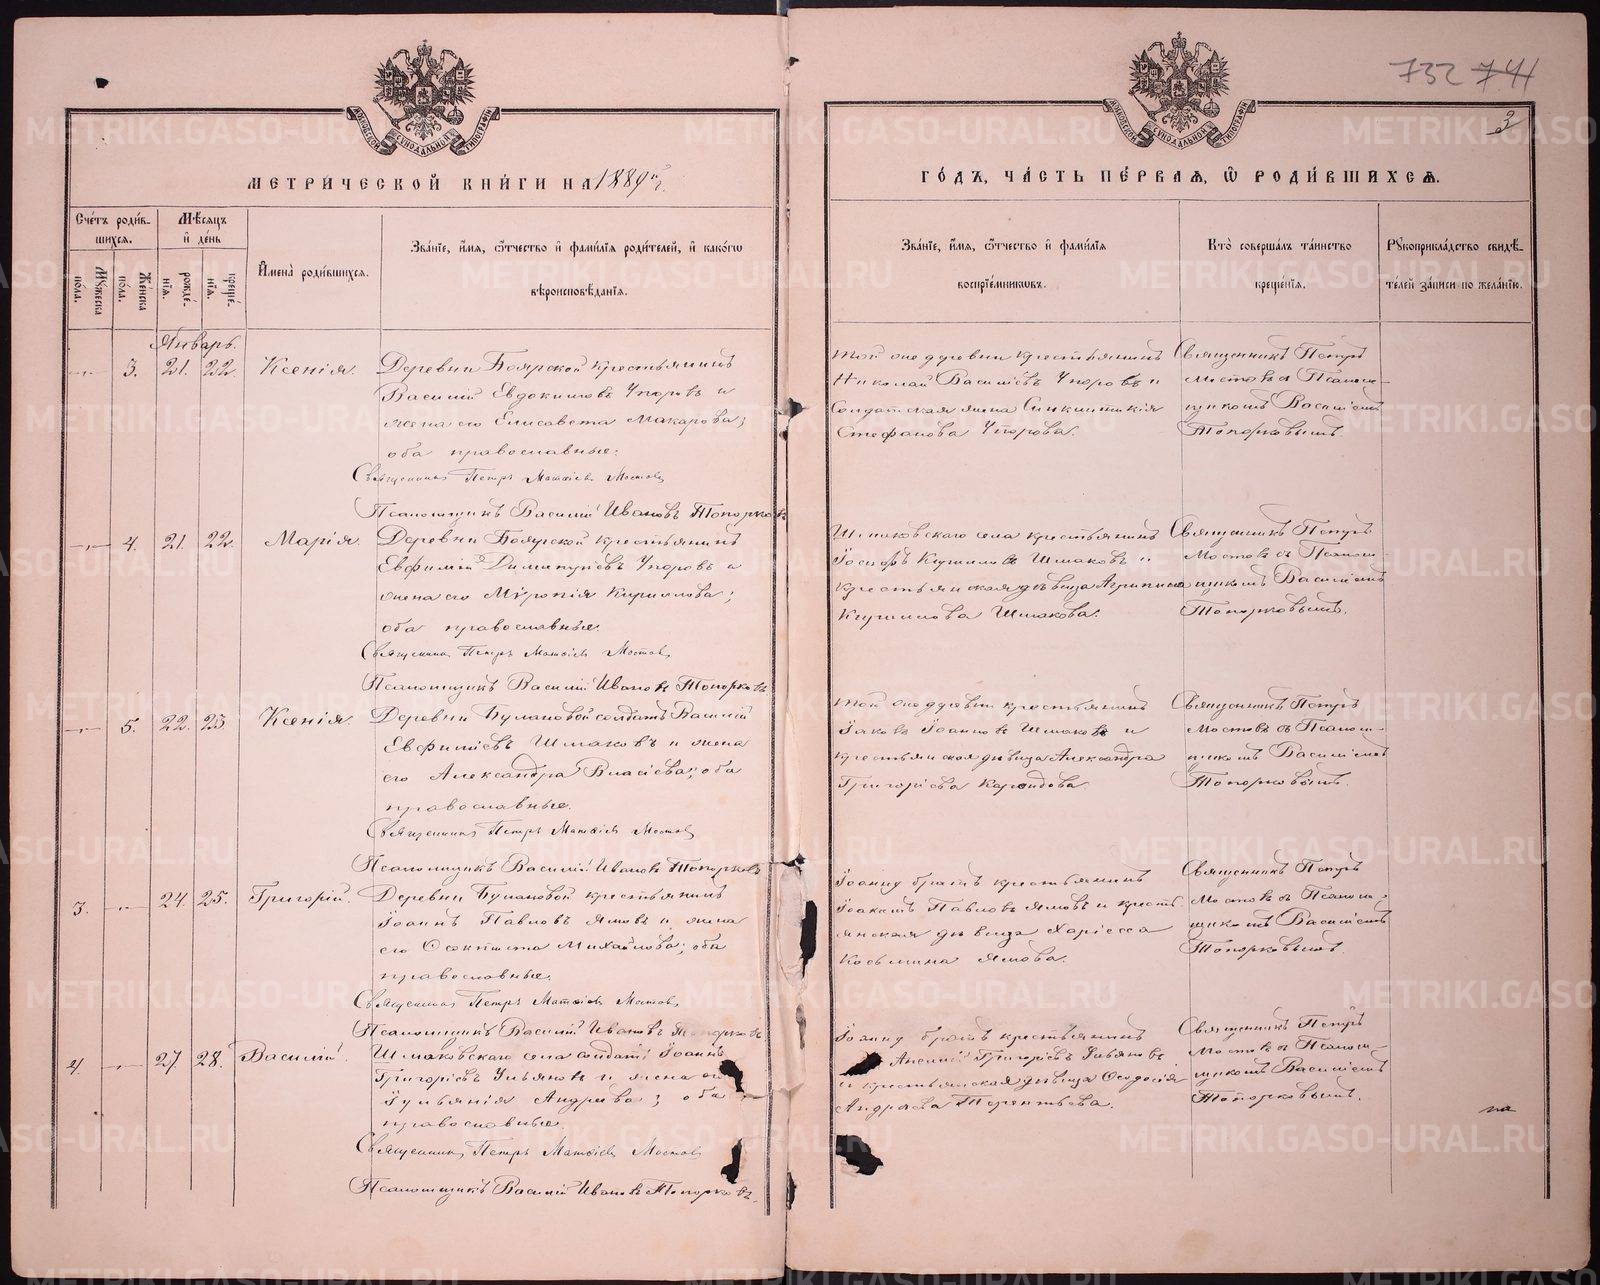 732 741
3
МЕТРИЧЕСКОЙ КНИГИ НА 1889 г.
ГОДЪ, ЧАСТЬ ПЕРВАЯ, Ѡ РОДИВШИХСЯ.
МОСКОВСКОЙ СѴНОДАЛЬНОЙ ТИПОГРАФІИ
МОСКОВСКОЙ СѴНОДАЛЬНОЙ ТИПОГРАФІИ
Счетъ родившихся.
Мужеска пола.
Женска пола.
Мѣсяцъ и день
рожденія.
крещенія.
Имена родившихся.
Званіе, имя, ѿчество и фамилія родителей, и какогѡ
вѣроисповѣданія.
Званіе, имя, ѿчество и фамилія
воспріемниковъ.
Кто совершалъ таинство
крещенія.
Рукоприкладство свидѣ-
телей записи по желанію.
Январь.
3. 21. 22. Ксенія.
Деревни Боярской крестьянинъ
Василій Евдокимовъ Упоровъ и
жена его Елисавета Макарова;
оба православные.
Священникъ Петръ Матѳіевъ Мостовъ
Псаломщикъ Василій Ивановъ Топорковъ
Той же деревни крестьянинъ
Николай Василіевъ Упоровъ и
Солдатская жена Синклитикія
Стефанова Упорова.
Священникъ Петръ
Мостовъ съ Псалом-
щикомъ Василіемъ
Топорковымъ.
4. 21. 22. Марія.
Деревни Боярской крестьянинъ
Евфимій Димитріевъ Упоровъ и
жена его Мѵропія Кириллова;
оба православные.
Священникъ Петръ Матѳіевъ Мостовъ
Псаломщикъ Василій Ивановъ Топорковъ
Шмаковскаго села крестьянинъ
Кирилловъ Шмаковъ и
крестьянская дѣвица Агрипина
Кириллова Шмакова.
Священникъ Петръ
Мостовъ съ Псалом-
щикомъ Василіемъ
Топорковымъ.
5. 22. 23. Ксенія.
Деревни Булановой солдатъ Василій
Евфиміевъ Шмаковъ и жена
его Александра Власіева; оба
православные.
Священникъ Петръ Матѳіевъ Мостовъ
Псаломщикъ Василій Ивановъ Топорковъ
Той же деревни крестьянинъ
Іаковъ Іоанновъ Шмаковъ и
крестьянская дѣвица Александра
Григоріева
Священникъ Петръ
Мостовъ съ Псалом-
щикомъ Василіемъ
Топорковымъ.
3. 24. 25. Григорій.
Деревни Булановой крестьянинъ
Іоаннъ Павловъ Ямовъ и жена
его Ѳеоктиста Михайлова; оба
православные.
Священникъ Петръ Матѳіевъ Мостовъ
Псаломщикъ Василій Ивановъ Топорковъ
Іоанну братъ крестьянинъ
Іоакимъ Павловъ Ямовъ и кресть-
янская дѣвица Харіесса
Косьмина Ямова.
Священникъ Петръ
Мостовъ съ Псалом-
щикомъ Василіемъ
Топорковымъ.
4. 27. 28. Василій.
Шмаковскаго села солдатъ Іоаннъ
Григоріевъ Ульяновъ и жена его
Іуліанія Андреева; оба
православные.
Священникъ Петръ Матѳіевъ Мостовъ
Псаломщикъ Василій Ивановъ Топорковъ.
Іоанну братъ крестьянинъ
Григоріевъ Ульяновъ
и крестьянская дѣвица Ѳеодосія
Андреева Терентьева.
Священникъ Петръ
Мостовъ съ Псалом-
щикомъ Василіемъ
Топорковымъ.
на
METRIKI.GASO-URAL.RU